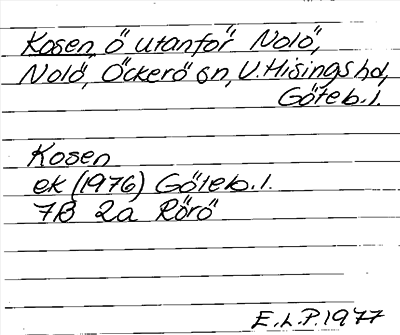 Kosen, ö utanför Nolö,
Nolö, Öckerö sn, V. Hisings hd,
Göteb. l.
Kosen
ek (1976) Göteb. l.
7B 2a Rörö
E.L.P. 1977